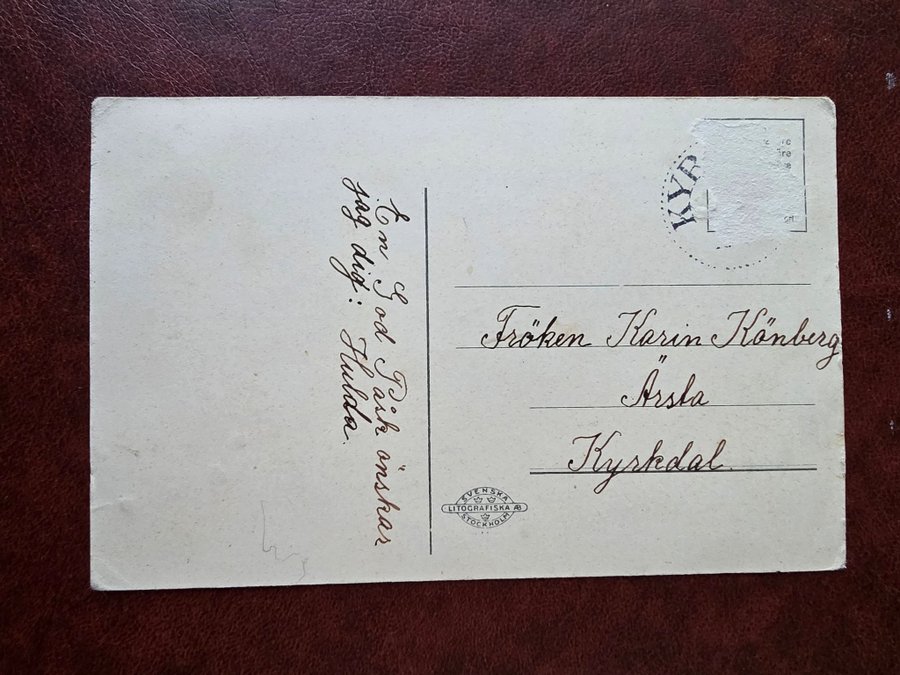 En God Påsk önskar
jag dig: Hulda.
KYR
Fröken Karin Könberg
Ärsta
Kyrkdal.
SVENSKA
LITOGRAFISKA AB
STOCKHOLM